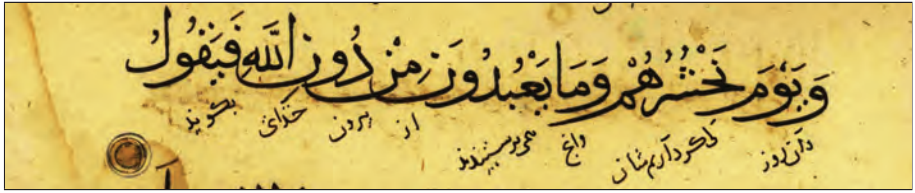 وَيَوْمَ نَحْشُرُهُمْ وَمَا يَعْبُدُونَ مِنْ دُونِ اللَّهِ فَيَقُولُ
وآن روز کرد آریم شان وآنچ می پرستیدند از بیرون خدای بگوید